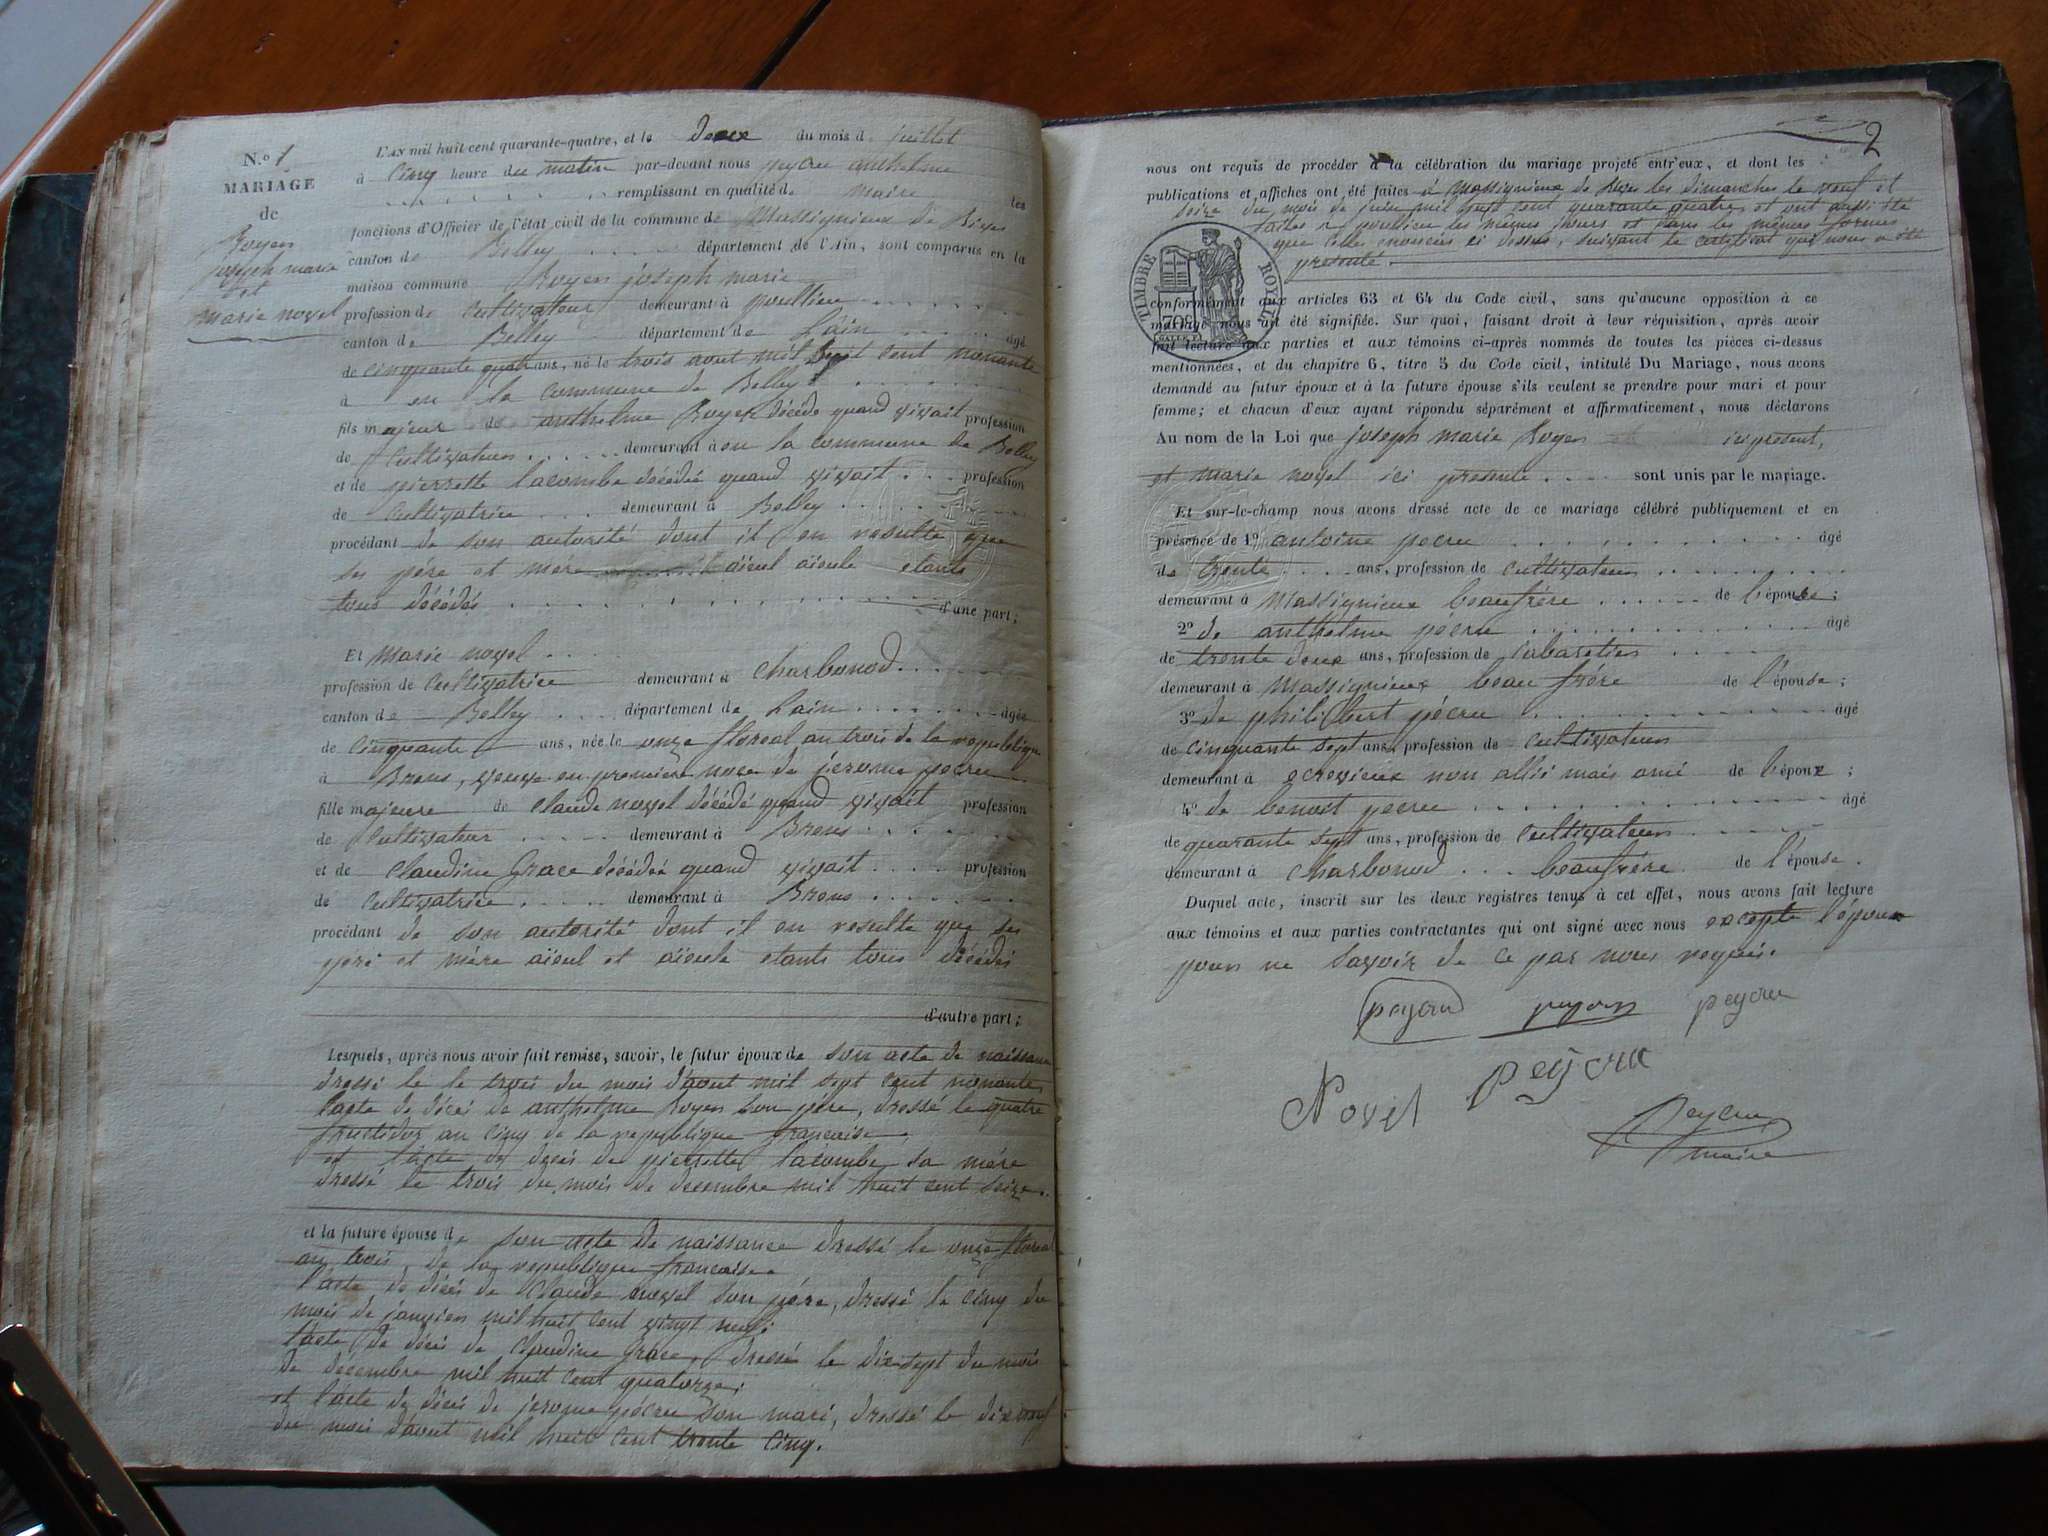 N.o 1
MARIAGE
de
Royer
joseph marie
et
marie novel
L'AN mil huit cent quarante-quatre, et le deux du mois d juillet
à cinq heure du matin par-devant nous peycru anthelme
remplissant en qualité de maire les
fonctions d'Officier de l'état civil de la commune de Massignieux de Rives
canton de Belley département de l'Ain, sont comparus en la
maison commune Royer joseph marie
profession de cultivateur demeurant à poullieu
canton de Belley département de L'ain âgé
de cinquante quatr ans, né le trois aout mil huit cent nonante
à en la commune de Belley
fils majeur de anthelme Royer décédé quand vivait profession
de cultivateur demeurant à en la commune de Belley
et de pierrette lacombe décédéé quand vivait profession
de cultivatrice demeurant à Belley
procédant de son autorité dont il en resulte que
ses pére et mere aïeul aïeule etants
tous décédés d'une part;
Et Marie novel
profession de cultivatrice demeurant à Charbonod
canton de Belley département de L'ain âgée
de cinquante ans, née le onze floreal an trois de la republique
à Brens, veuve en première noce de jerome pecru
fille majeure de claude novel décédé quand vivait profession
de cultivateur demeurant à Brens
et de claudine Grace décédéé quand vivait profession
de cultivatrice demeurant à Brens
procédant de son autorité dont il en resulte que ses
peré et mére aïeul et aïeule etants tous décédés
d'autre part;
Lesquels, après nous avoir fait remise, savoir, le futur époux de son acte de naissance
dressé le le trois du mois d'aout mil sept cent nonante
l'acte de décés de anthelme Royer son pére, dressé le quatre
fructidor an cinq de la republique francaise,
et l'acte de décés de pierrette lacombe sa mére
dressé le trois du mois de decembre mil huit cent seize.
et la future épouse de son acte de naissance dressé le onze floreal
an trois, de la republique francaise.
l'acte de décés de Claude novel son pére, dressé le cinq du
mois de janvier mil huit cent vingt neuf;
l'acte de décés de Claudine Grace, dressé le dix sept du mois
de decembre mil huit cent quatorze;
et l'acte de décés de jerome pécru son mari, dressé le dix neuf
du mois d'aout mil huit cent trente cinq.
2
nous ont requis de procéder à la célébration du mariage projeté entr'eux, et dont les
publications et affiches ont été faites à Massignieux de Rives les dimanches le neuf et
seize du mois de juin mil huit cent quarante quatre, et ont aussi été
faites a poullieu les mêmes jours et dans les mêmes formes
que celles enoncées ci dessus, suivant le certificat qui nous a été
presenté.
TIMBRE ROYAL
70c
conformément aux articles 63 et 64 du Code civil, sans qu'aucune opposition à ce
mariage nous ait été signifiée. Sur quoi, faisant droit à leur réquisition, après avoir
fait lecture aux parties et aux témoins ci-après nommés de toutes les pièces ci-dessus
mentionnées, et du chapitre 6, titre 5 du Code civil, intitulé Du Mariage, nous avons
demandé au futur époux et à la future épouse s'ils veulent se prendre pour mari et pour
femme; et chacun d'eux ayant répondu séparément et affirmativement, nous déclarons
Au nom de la Loi que joseph marie Royer ici present,
et marie novel ici presente sont unis par le mariage.
Et sur-le-champ nous avons dressé acte de ce mariage célébré publiquement et en
présence de 1o antoine pecru âgé
de trente ans, profession de cultivateur
demeurant à Massignieux beaufrére de l'épouse;
2o de anthelme pécru âgé
de trente deux ans, profession de cabaretier
demeurant à Massignieux beau frére de l'épouse;
3o de philibert pécru âgé
de cinquante sept ans, profession de cultivateur
demeurant à ecrevieux non allié mais ami de l'époux;
4o de benoit pecru âgé
de quarante sept ans, profession de cultivateur
demeurant à Charbonod beaufrére de l'épouse.
Duquel acte, inscrit sur les deux registres tenus à cet effet, nous avons fait lecture
aux témoins et aux parties contractantes qui ont signé avec nous excepte l'époux
pour ne savoir de ce par nous requis.
peycru peycru peycru
Novel peycru
Peycru
maire